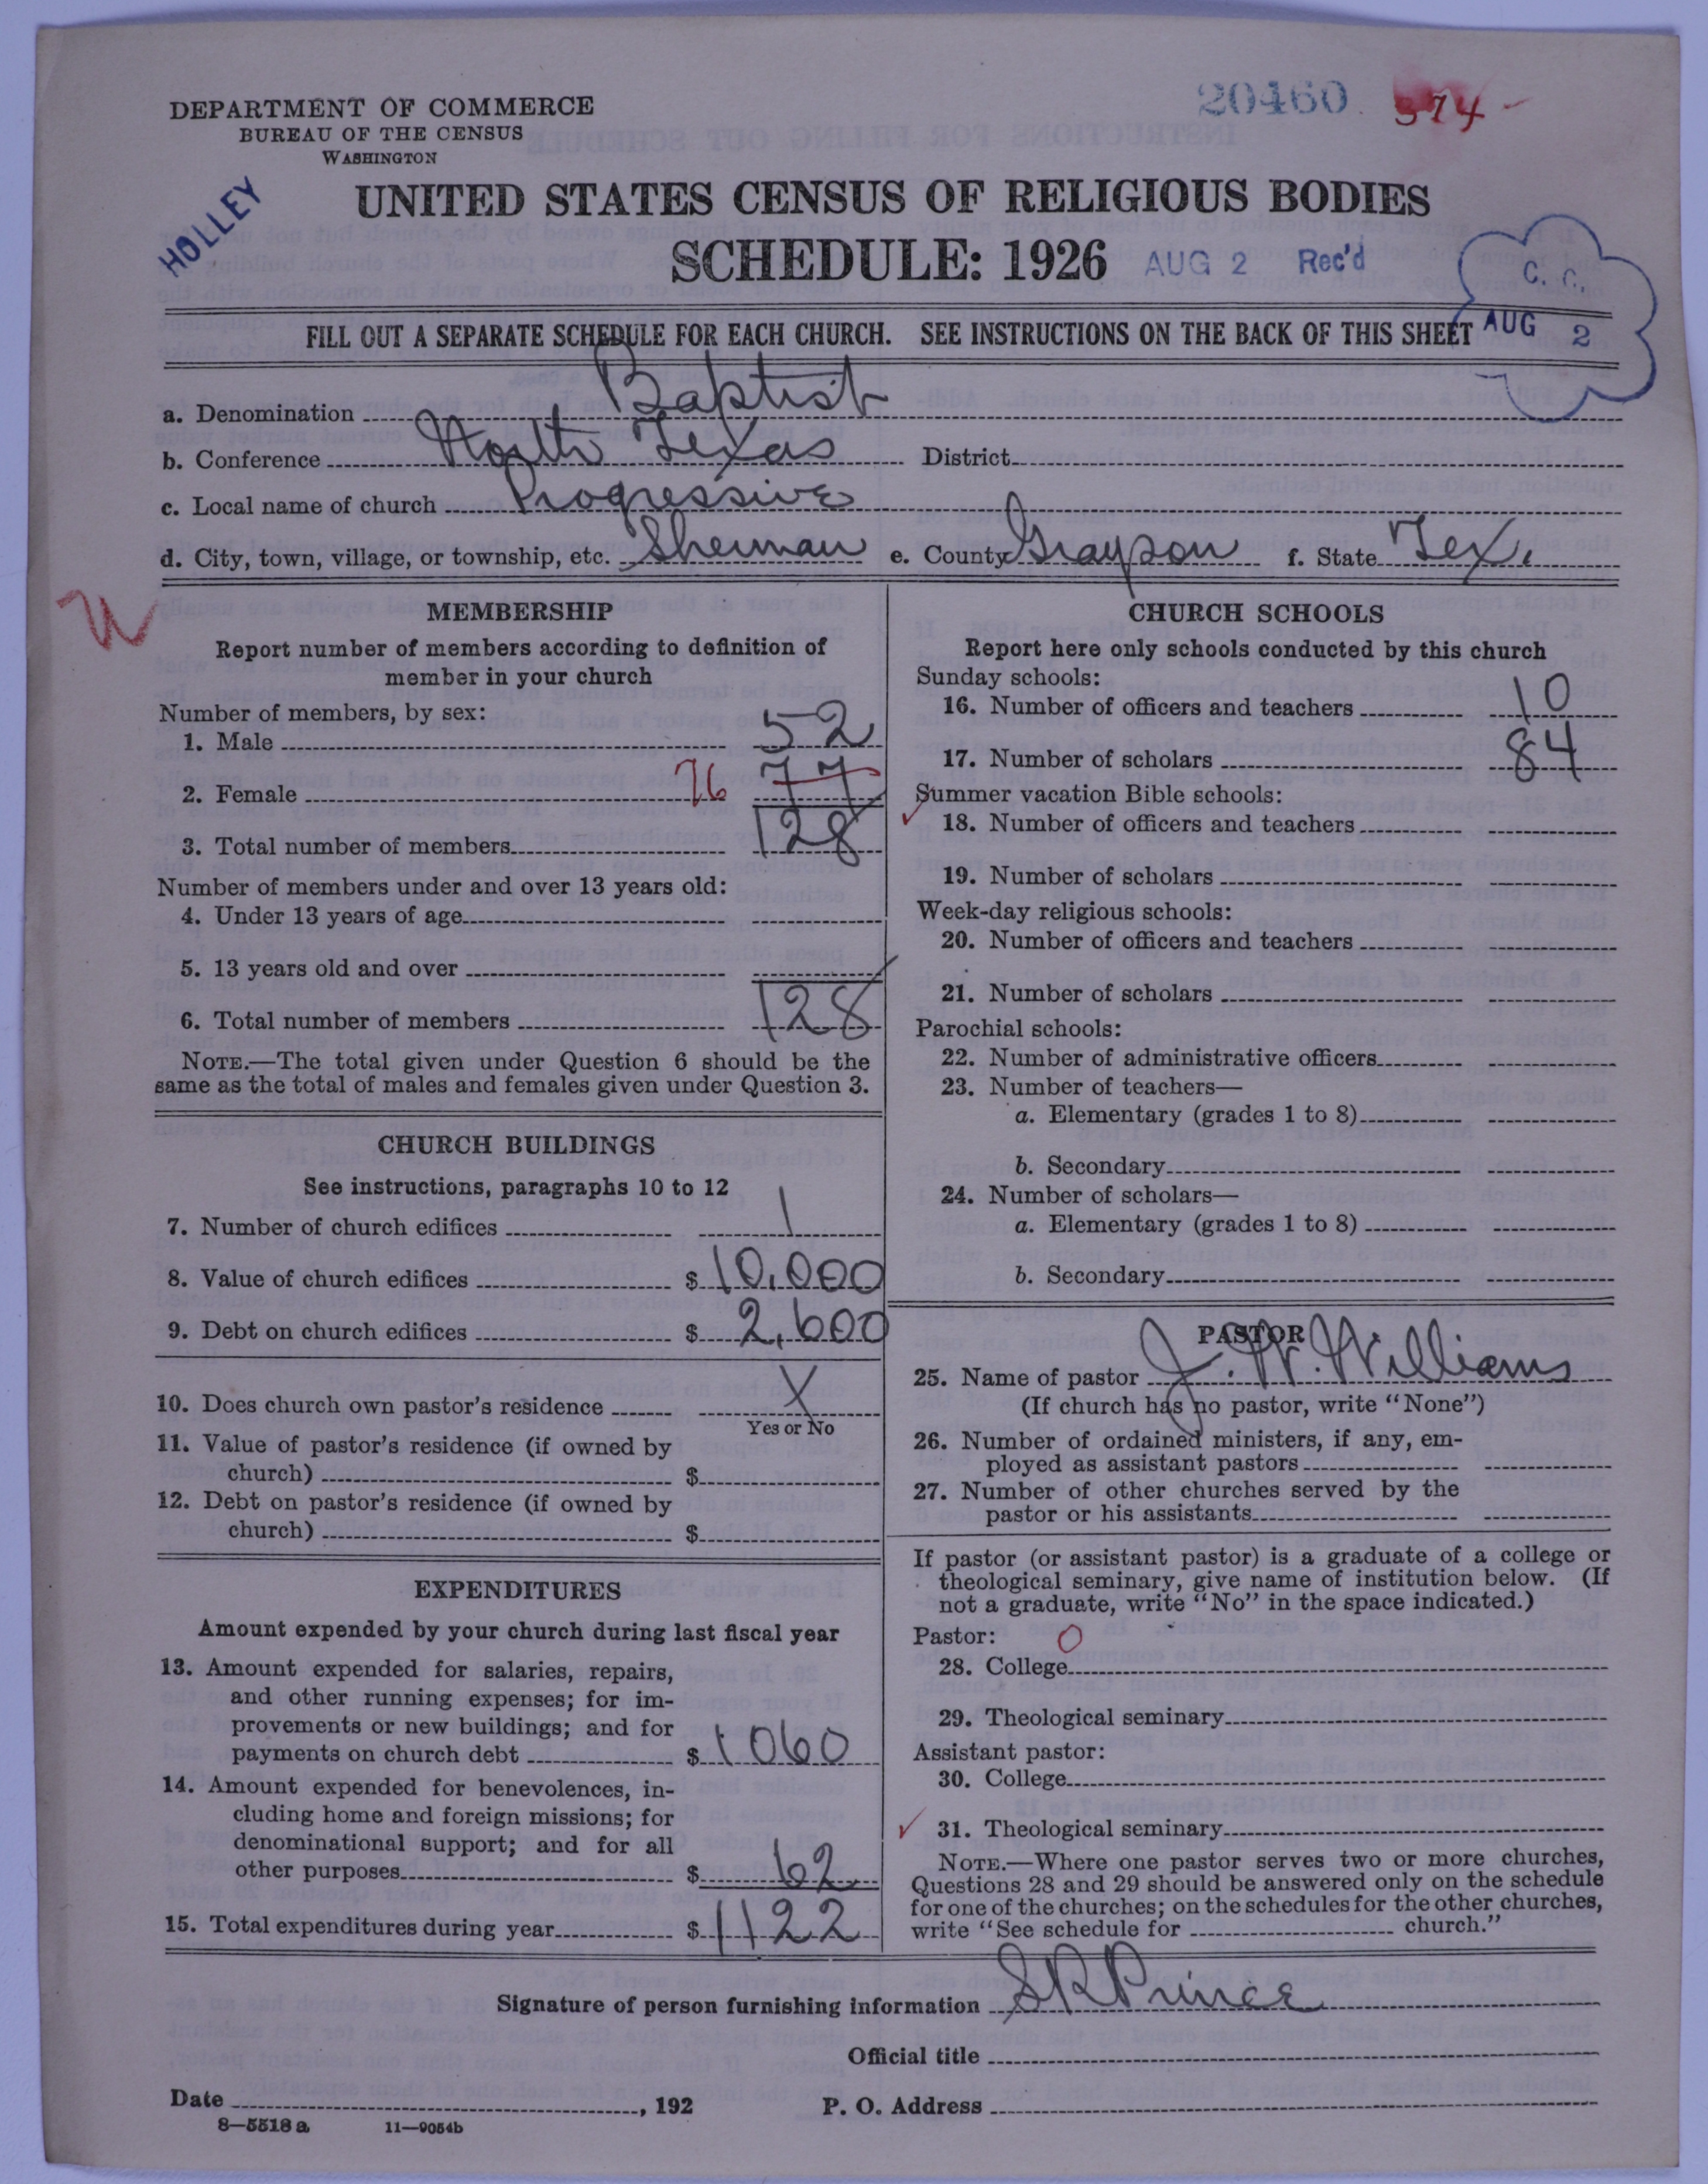 20460 374-
DEPARTMENT OF COMMERCE
BUREAU OF THE CENSUS
WASHINGTON
HOLLEY
UNITED STATES CENSUS OF RELIGIOUS BODIES
SCHEDULE: 1926 AUG 2 Rec'd
C. C.
AUG 2
FILL OUT A SEPARATE SCHEDULE FOR EACH CHURCH. SEE INSTRUCTIONS ON THE BACK OF THIS SHEET
a. Denomination Baptist
b. Conference North Texas District
c. Local name of church Progressive
d. City, town, village, or township, etc. Sherman e. County Grayson f. State Tex.
MEMBERSHIP
Report number of members according to definition of
member in your church
Number of members, by sex:
1. Male 52
2. Female 76 77
3. Total number of members 128
Number of members under and over 13 years old:
4. Under 13 years of age
5. 13 years old and over
6. Total number of members 128
NOTE.—The total given under Question 6 should be the
same as the total of males and females given under Question 3.
CHURCH BUILDINGS
See instructions, paragraphs 10 to 12
7. Number of church edifices 1
8. Value of church edifices $ 10,000
9. Debt on church edifices $ 2,600
10. Does church own pastor's residence X
Yes or No
11. Value of pastor's residence (if owned by
church) $
12. Debt on pastor's residence (if owned by
church) $
EXPENDITURES
Amount expended by your church during last fiscal year
13. Amount expended for salaries, repairs,
and other running expenses; for im-
provements or new buildings; and for
payments on church debt $ 1060
14. Amount expended for benevolences, in-
cluding home and foreign missions; for
denominational support; and for all
other purposes $ 62
15. Total expenditures during year $ 1122
CHURCH SCHOOLS
Report here only schools conducted by this church
Sunday schools:
16. Number of officers and teachers 10
17. Number of scholars 84
Summer vacation Bible schools:
18. Number of officers and teachers
19. Number of scholars
Week-day religious schools:
20. Number of officers and teachers
21. Number of scholars
Parochial schools:
22. Number of administrative officers
23. Number of teachers—
a. Elementary (grades 1 to 8)
b. Secondary
24. Number of scholars—
a. Elementary (grades 1 to 8)
b. Secondary
PASTOR
25. Name of pastor J. W. Williams
(If church has no pastor, write "None")
26. Number of ordained ministers, if any, em-
ployed as assistant pastors
27. Number of other churches served by the
pastor or his assistants
If pastor (or assistant pastor) is a graduate of a college or
theological seminary, give name of institution below. (If
not a graduate, write "No" in the space indicated.)
Pastor: O
28. College
29. Theological seminary
Assistant pastor:
30. College
31. Theological seminary
NOTE.—Where one pastor serves two or more churches,
Questions 28 and 29 should be answered only on the schedule
for one of the churches; on the schedules for the other churches,
write "See schedule for church."
Signature of person furnishing information S R Prince
Official title
Date , 192 P. O. Address
8—5518 a 11—9054b